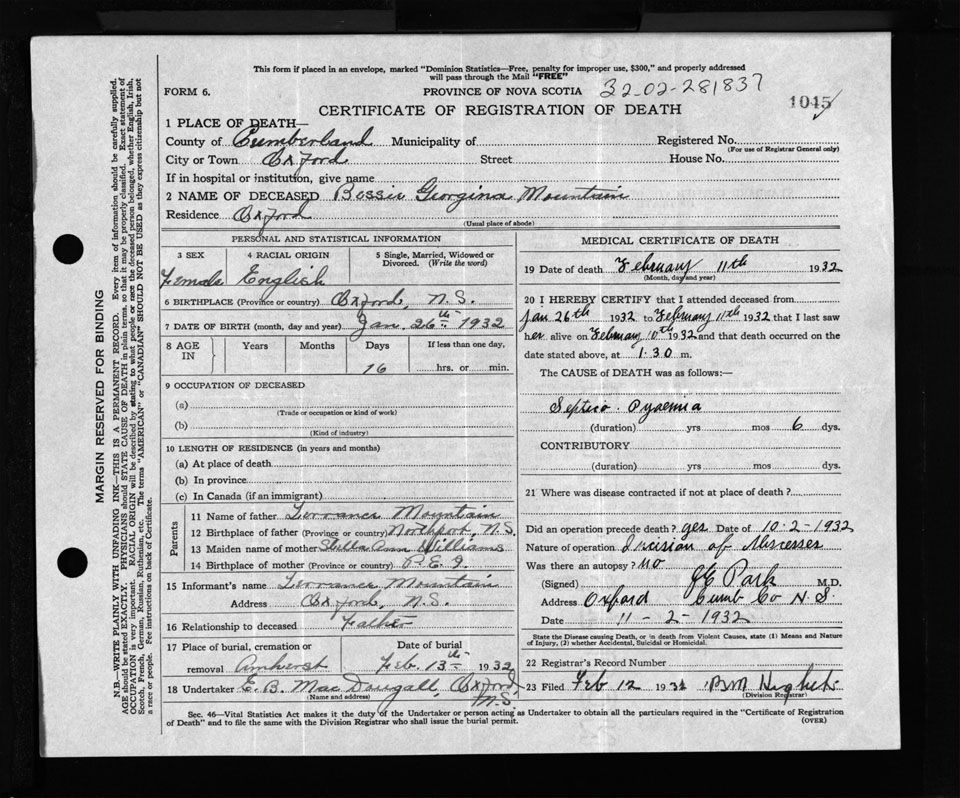 This form if placed in an envelope, marked "Dominion Statistics—Free, penalty for improper use, $300," and properly addressed
will pass through the Mail "FREE"
FORM 6. PROVINCE OF NOVA SCOTIA 32-02-281837
CERTIFICATE OF REGISTRATION OF DEATH 1045
1 PLACE OF DEATH—
County of Cumberland Municipality of Registered No.
(For use of Registrar General only)
City or Town Oxford Street House No.
If in hospital or institution, give name
2 NAME OF DECEASED Bessie Georgina Mountain
Residence Oxford
(Usual place of abode)
PERSONAL AND STATISTICAL INFORMATION
3 SEX 4 RACIAL ORIGIN 5 Single, Married, Widowed or
Divorced. (Write the word)
Female English
6 BIRTHPLACE (Province or country) Oxford, N.S.
7 DATE OF BIRTH (month, day and year) Jan. 26th 1932
8 AGE IN Years Months Days If less than one day,
16 hrs. or min.
9 OCCUPATION OF DECEASED
(a)
(Trade or occupation or kind of work)
(b)
(Kind of industry)
10 LENGTH OF RESIDENCE (in years and months)
(a) At place of death
(b) In province
(c) In Canada (if an immigrant)
Parents
11 Name of father Terrance Mountain
12 Birthplace of father (Province or country) Northport, N.S.
13 Maiden name of mother Stella Ann Williams
14 Birthplace of mother (Province or country) P.E.I.
15 Informant's name Terrance Mountain
Address Oxford, N.S.
16 Relationship to deceased Father
17 Place of burial, cremation or Date of burial
removal Amherst Feb. 13th 1932
18 Undertaker E. B. MacDougall, Oxford
(Name and address) N.S.
MEDICAL CERTIFICATE OF DEATH
19 Date of death February 11th 1932
(Month, day and year)
20 I HEREBY CERTIFY that I attended deceased from
Jan 26th 1932 to February 11th 1932 that I last saw
her alive on February 10th 1932 and that death occurred on the
date stated above, at 1.30 m.
The CAUSE of DEATH was as follows:—
Septic Pyaemia
(duration) yrs mos 6 dys.
CONTRIBUTORY
(duration) yrs mos dys.
21 Where was disease contracted if not at place of death?
Did an operation precede death? yes Date of 10-2-1932
Nature of operation Incision of Abscesses
Was there an autopsy? No
(Signed) Park M.D.
Address Oxford Cumb Co N.S.
Date 11-2-1932
State the Disease causing Death, or in death from Violent Causes, state (1) Means and Nature
of Injury, (2) whether Accidental, Suicidal or Homicidal.
22 Registrar's Record Number
23 Filed Feb 12 1932
(Division Registrar)
Sec. 46—Vital Statistics Act makes it the duty of the Undertaker or person acting as Undertaker to obtain all the particulars required in the "Certificate of Registration
of Death" and to file the same with the Division Registrar who shall issue the burial permit. (OVER)
MARGIN RESERVED FOR BINDING
N.B.—WRITE PLAINLY WITH UNFADING INK—THIS IS A PERMANENT RECORD. Every item of information should be carefully supplied.
AGE should be stated EXACTLY. PHYSICIANS should STATE CAUSE OF DEATH in plain terms, so that it may be properly classified. Exact statement of
OCCUPATION is very important. RACIAL ORIGIN will be described by stating to what people or race the deceased person belonged, whether English, Irish,
Scotch, French, German, Russian, Ruthenian, etc. The terms "AMERICAN" or "CANADIAN" SHOULD NOT BE USED as they express citizenship but not
a race or people. Fee instructions on back of Certificate.